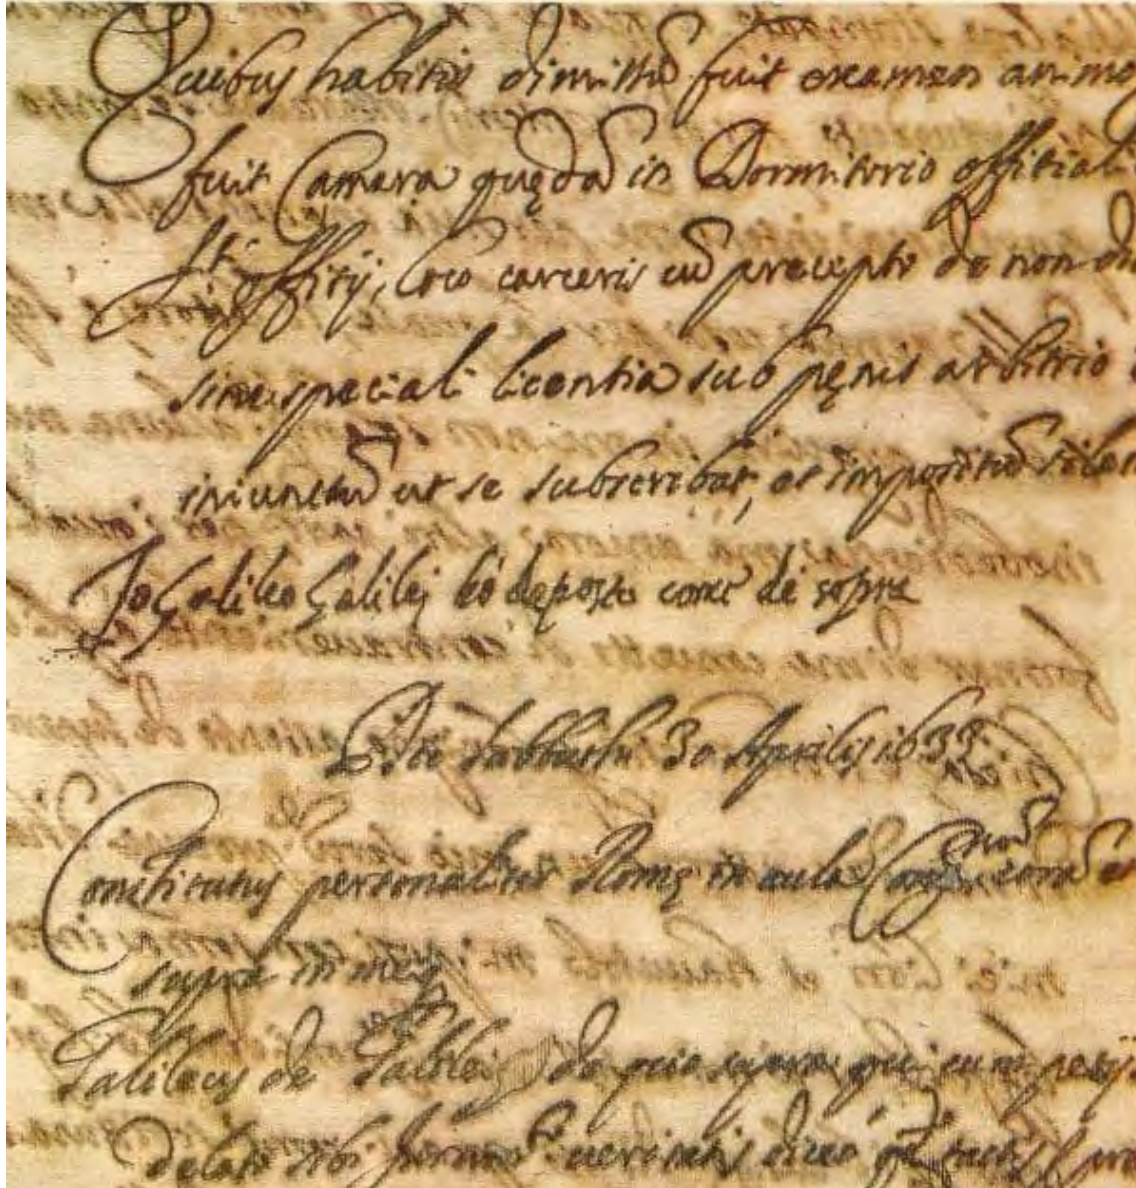 Quibus habitis dimissū fuit examen animo
fuit Camera quędā in Dormitorio offitiali
Sti. Offitij, loco carceris cū precepto de non
sine speciali licentia sub pęnis arbitrio
iniunctū ut se subscribat, et impositū silen
Io Galileo Galilej hò deposto come di sopra
Die Sabbathi 30 Aprilis 1633
Constitutus personaliter Romę in aula Congnis corā et
supra in meis
Galileus de Galileis de quo supra qui cum petijs
delato sibi iuramto veritatis dicendę